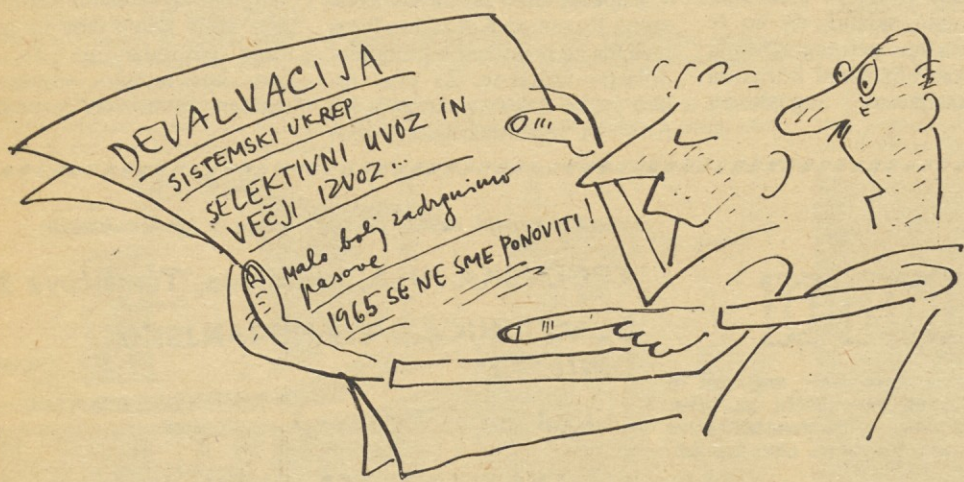 DEVALVACIJA
SISTEMSKI UKREP
SELEKTIVNI UVOZ IN
VEČJI IZVOZ...
Malo bolj zadrgnimo
pasove
1965 SE NE SME PONOVITI!